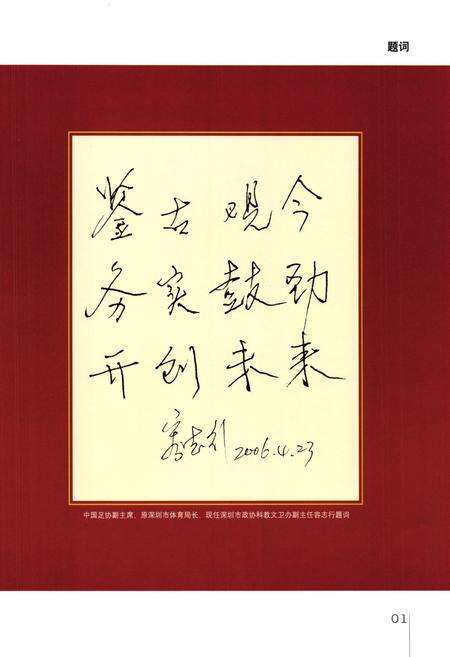 题词
鉴古观今
务实鼓劲
开创未来
容志行 2006.4.23
中国足协副主席、原深圳市体育局长、现任深圳市政协科教文卫办副主任容志行题词
01